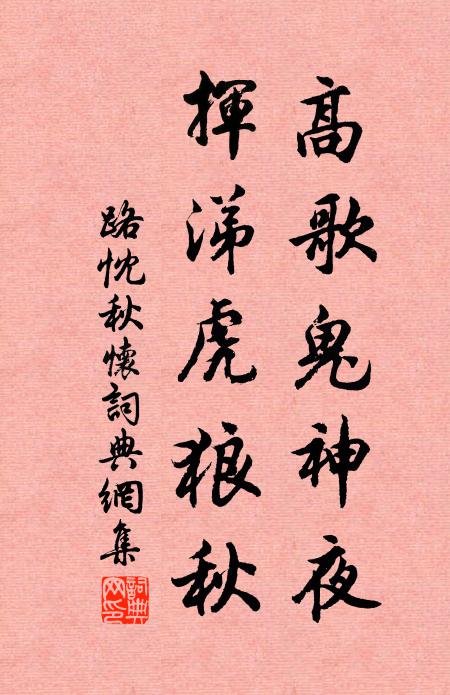 高歌鬼神夜
揮涕虎狼秋
路忱秋懷詞典網集
詞典網印